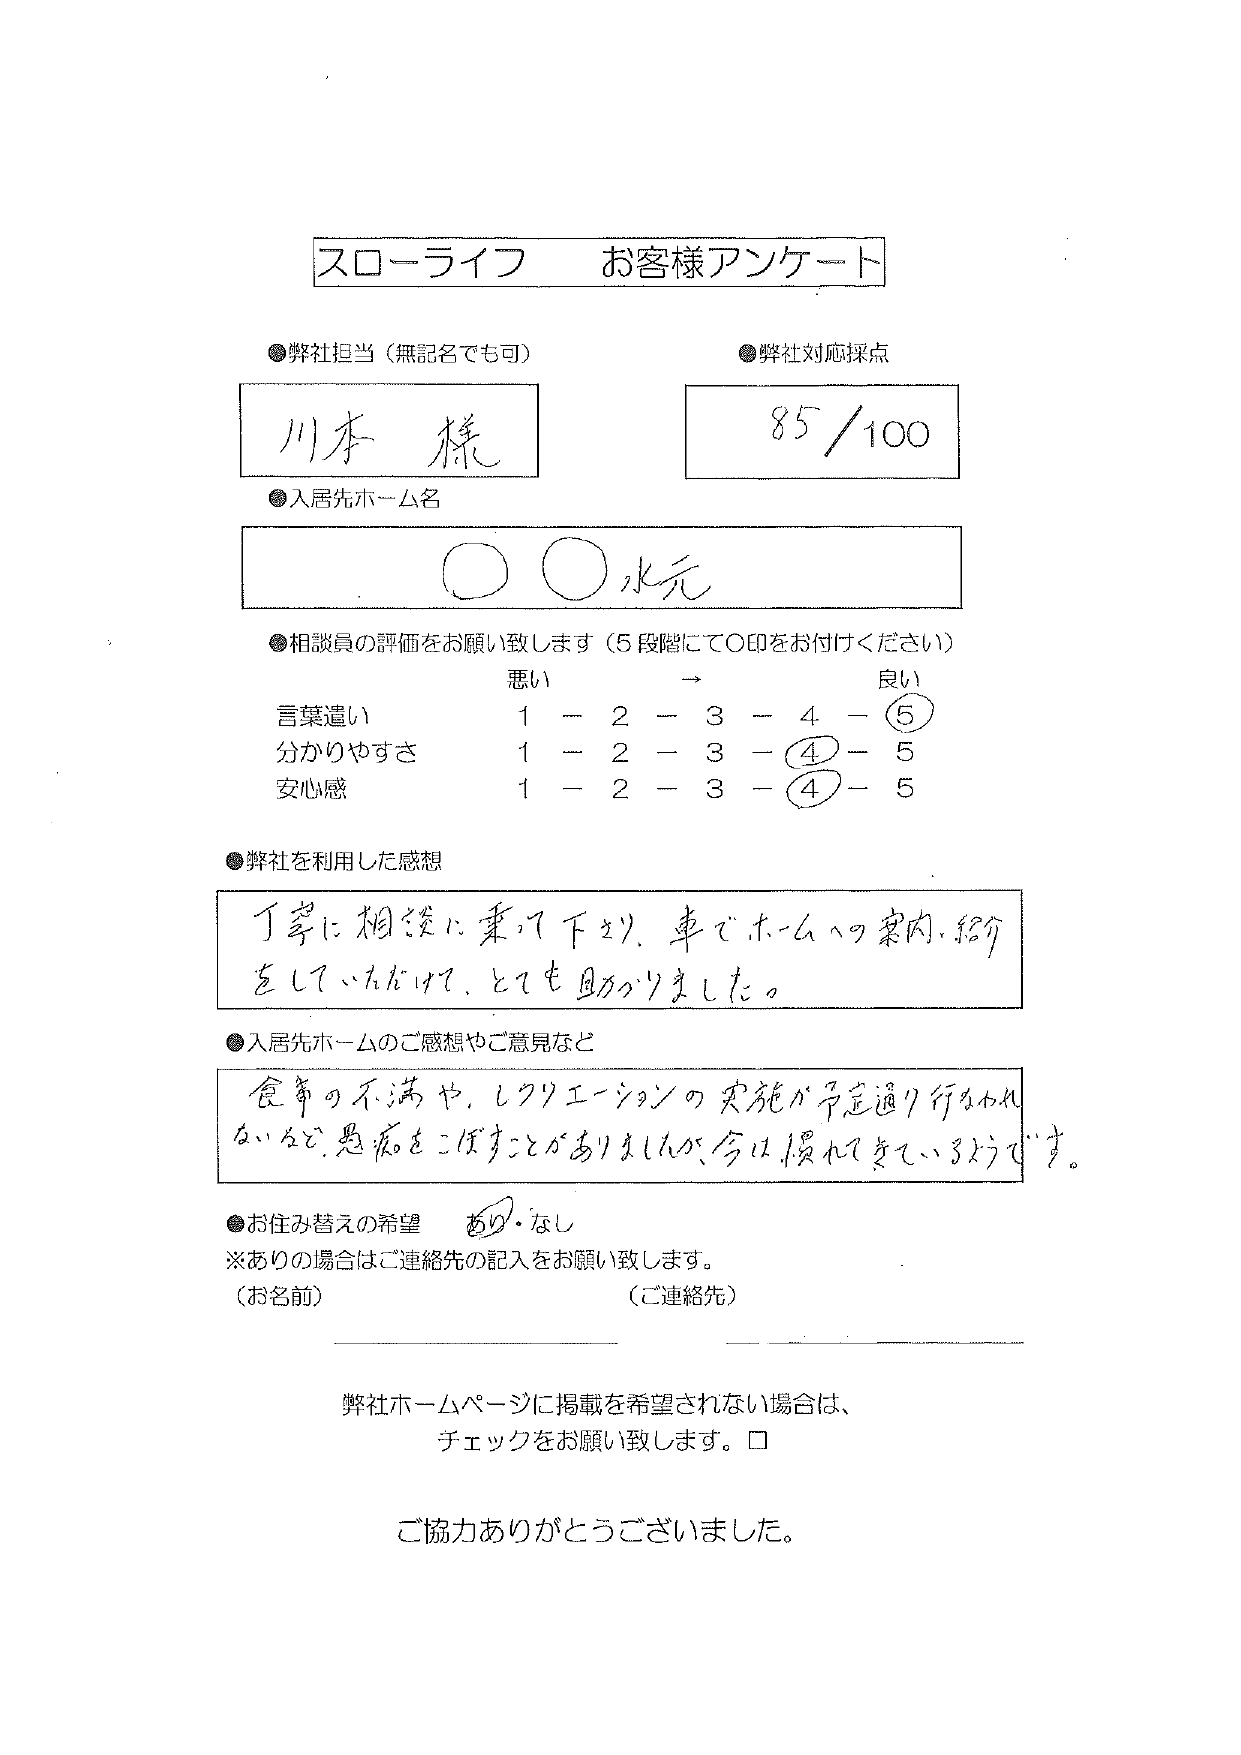 スローライフ　　お客様アンケート
●弊社担当（無記名でも可）　●弊社対応採点
川本　様　85/100
●入居先ホーム名
〇〇水元
●相談員の評価をお願い致します（5段階にて〇印をお付けください）
悪い　→　良い
言葉遣い　1 － 2 － 3 － 4 － 5
分かりやすさ　1 － 2 － 3 － 4 － 5
安心感　1 － 2 － 3 － 4 － 5
●弊社を利用した感想
丁寧に相談に乗って下さり、車でホームへの案内、紹介
をしていただけて、とても助かりました。
●入居先ホームのご感想やご意見など
食事の不満や、レクリエーションの実施が予定通り行なわれ
ないなど、愚痴をこぼすことがありましたが、今は慣れてきているようです。
●お住み替えの希望　あり・なし
※ありの場合はご連絡先の記入をお願い致します。
（お名前）　（ご連絡先）
弊社ホームページに掲載を希望されない場合は、
チェックをお願い致します。□
ご協力ありがとうございました。